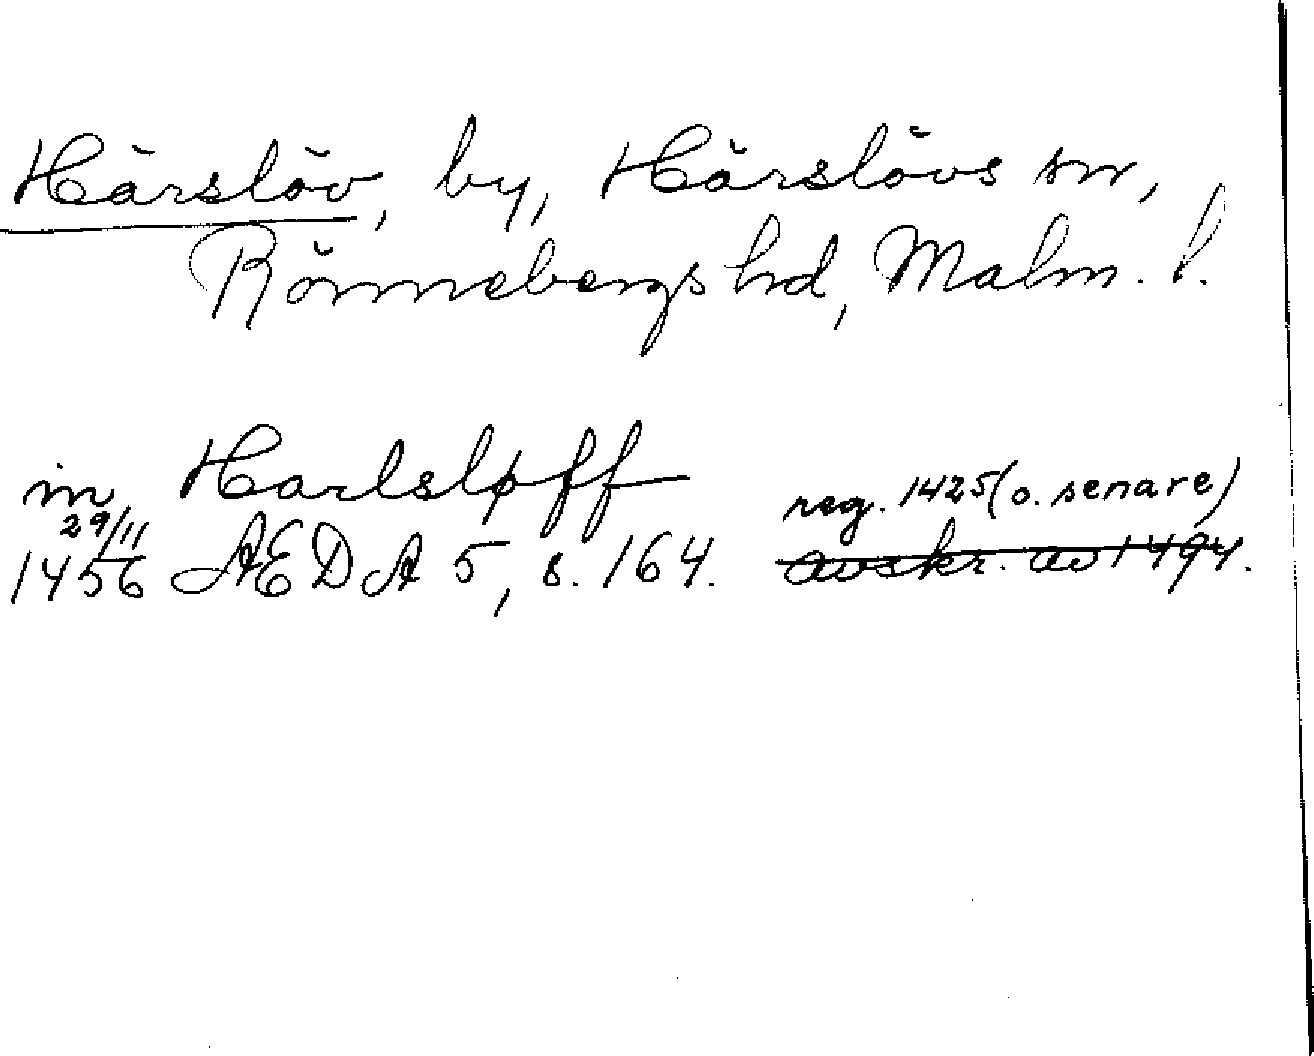 Härslöv, by, Härslövs sn,
Rönnebergs hd, Malm. l.
in Harlsløff
reg. 1425 (o. senare)
29/11
1456 AEDA 5, s. 164. avskr. av 1494.